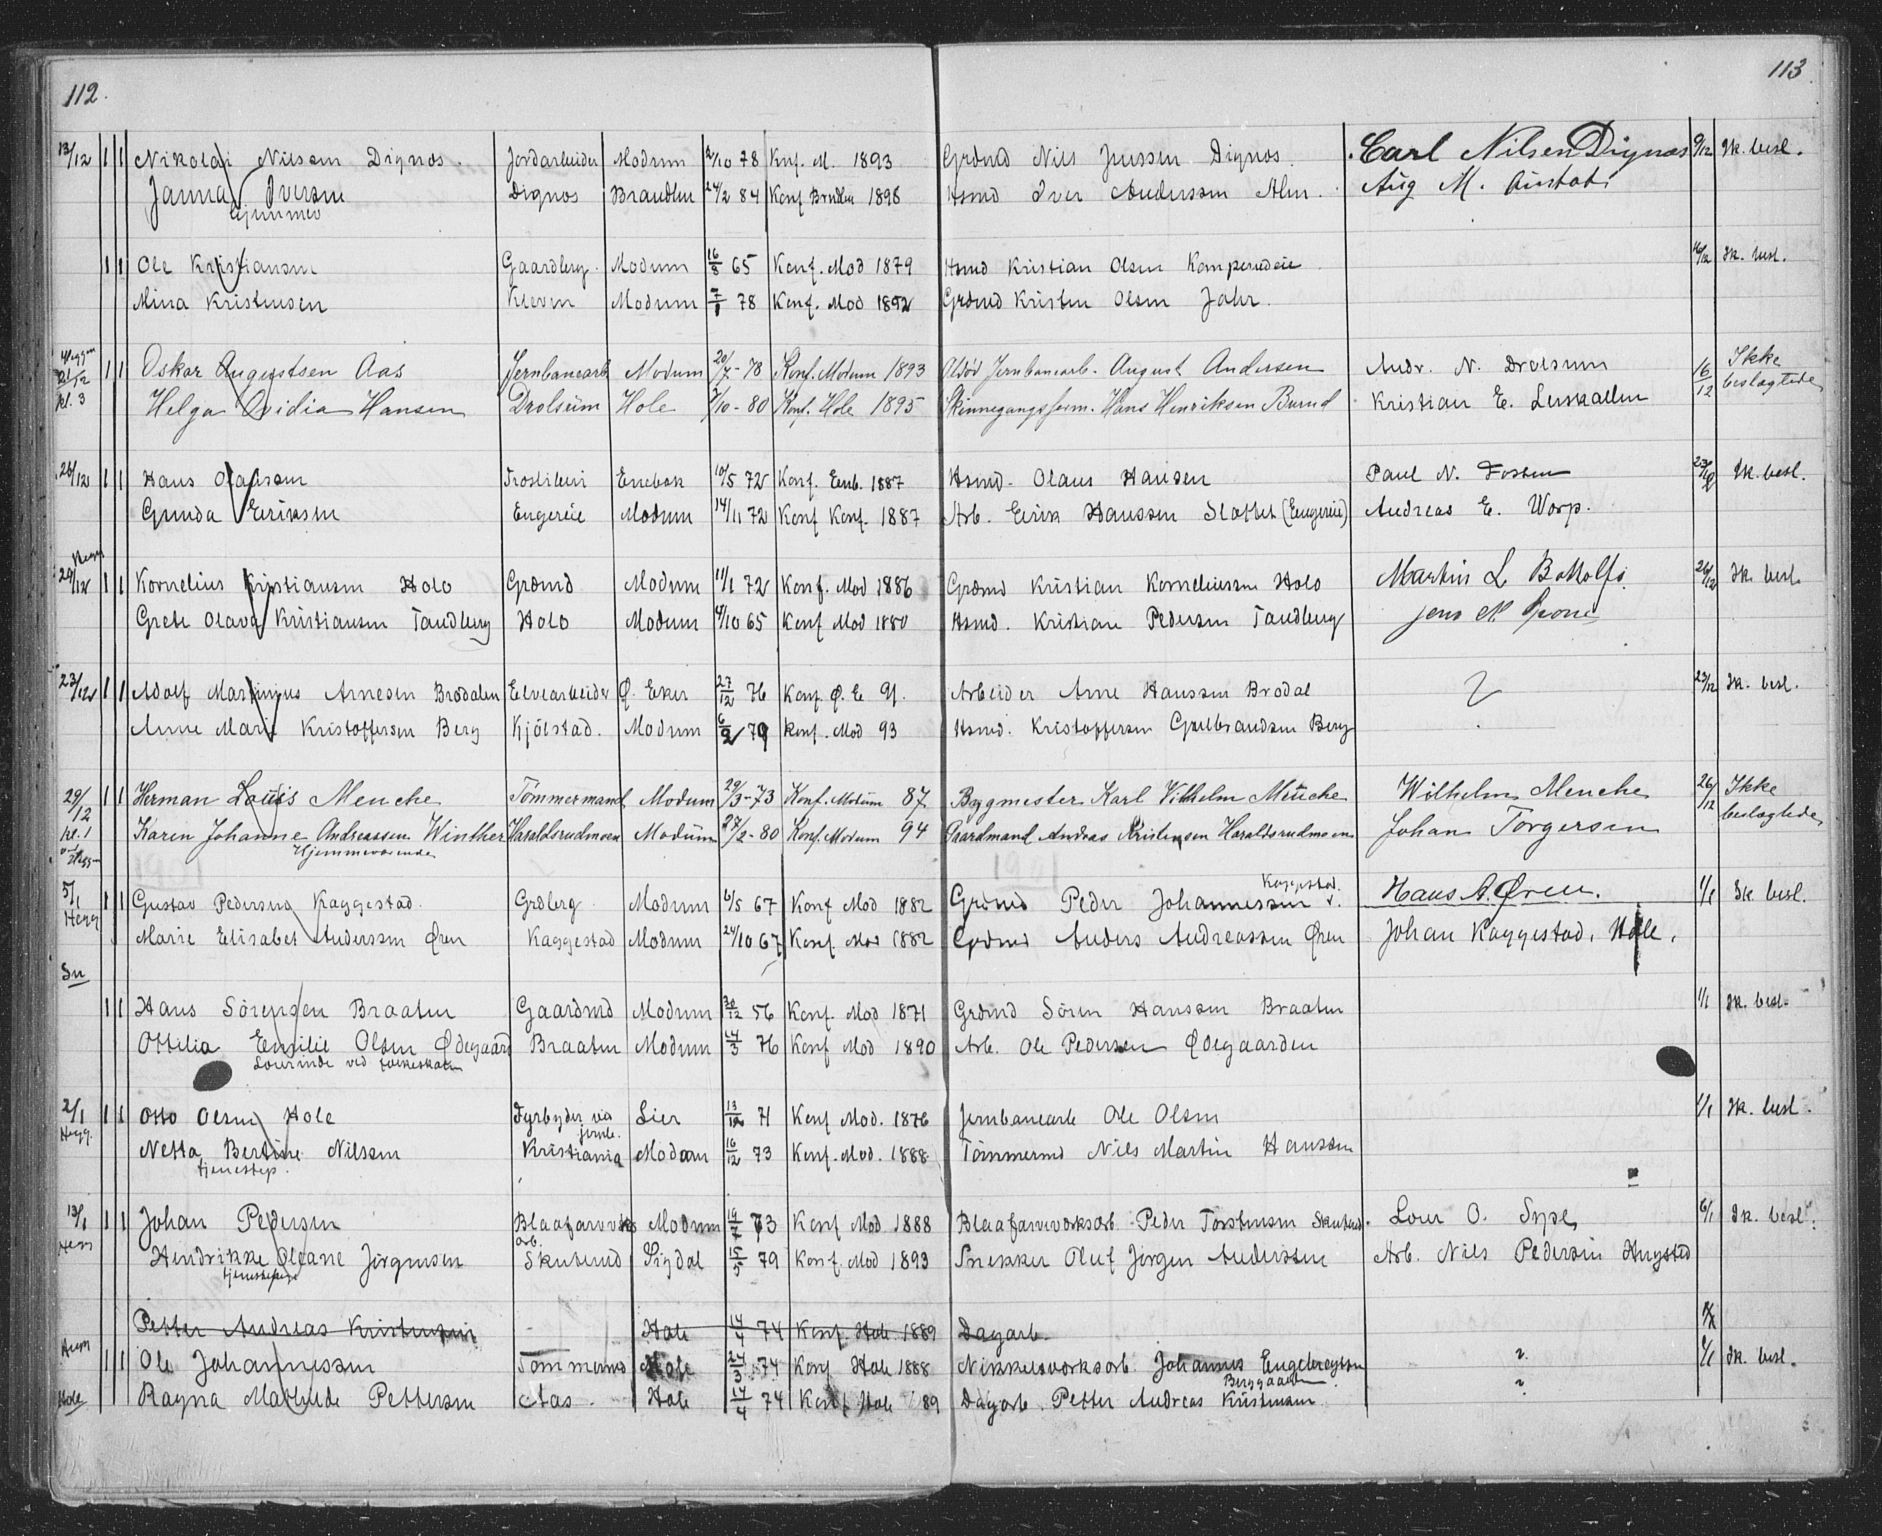 112.
113.
13/12 1 1 Nikolai Nilsen Dignos. Jordarbeider Modum 2/10 78 Knf. M. 1893 Grdmd Nils Jenssen Dignos. Carl Nilsen Dignos 9/12 Ik. besl.
Janna Iversen Dignos 24/2 84 Konf. 1898 Hsmd Iver Anderssen Alm. Aug M.
hjemmev
1 1 Ole Kristiansen Gaardbrg. Modum 16/8 65 Konf. Mod 1879 Hsmd Kristian Olsen 16/12 Ik. besl.
Mina Kristensen Kleven Modum 78 Konf. Mod 1892 Grdmd Kristen Olsen Jahr.
Heggen
kl. 3 1 1 Oskar Augustsen Aas Jernbanearb Modum 20/7-78 Konf. Modum 1893 Afdød Jernbanearb. August Andersen Andr. N. Drolsum 16/12 Ikke
Helga Ovidia Hansen Drolsum Hole 7/10-80 Konf. Hole 1895 Skinnegangsform. Hans Henriksen Burud Kristian E. beslægtede
26/12 1 1 Hans Olaussen Enebak 10/5 72 Konf. Enb. 1887 Hsmd. Olaus Hansen Paul N. Fossen Ik. besl.
Gunda Eriksen Engereie Modum 14/11 72 Konf Konf. 1887 Arb. Eirik Hanssen Slettet (Engereie) Andreas E. Worp.
Hegg
29/12 1 1 Kornelius Kristiansen Holo Grdmd Modum 11/1 72 Konf. Mod 1886 Grdmd Kristian Korneliussen Holo Martin L Bottolfs 26/12 Ik. besl.
Grethe Olava Kristiansen Tandberg Holo Modum 4/10 65 Konf Mod 1880 Hsmd. Kristian Pedersen Tandberg Jens N
23/12 1 1 Adolf Martinius Arnesen Brodalen Elvearbeider Ø. Eker 27/12 76 Konf. Ø. E 91. Arbeider Arne Hanssen Brodal ? 23/12 Ik. besl.
Anne Marie Kristoffersen Berg Kjølstad. Modum 6/2 79 Konf. Mod 93 Hsmd. Kristoffersen Gulbrandsen Berg
29/12 1 1 Herman Louis Menche Tömmermand Modum 29/3-73 Konf. Modum 87 Bygmester Karl Vilhelm Menche Wilhelm Menche 26/12 Ikke
kl. 1 Karen Johanne Andreassen Winther Haraldsrudmoen Modum 27/2-80 Konf. Modum 94 Gaardmand Andreas Kristensen Haraldsrudmoen Johan Torgersen beslægtede
Hjemmeværende
5/1 1 1 Gustav Pedersen Kaggestad. Grdbrg. Modum 6/5 67 Konf Mod 1882 Grdmd Peder Johannessen Kaggestad. Hans A. Øren. 1/1 Ik. besl.
Hegg Marie Elisabet Anderssen Øren Kaggestad Modum 24/10 67 Konf. Mod 1882 Grdmd Anders Andreassen Øren Johan Kaggestad, Hole.
Sn
1 1 Hans Sörensen Braaten Gaardmd Modum 56 Konf. Mod 1871 Grdmd Sören Hanssen Braaten 1/1 Ik. besl.
Ottilia Emilie Olsen Ødegaard Braaten Modum 14/3 76 Konf Mod 1890 Arb. Ole Pedersen Ødegaarden
Lærerinde ved folkeskolen
2/1 1 1 Otto Olsen Hole Fyrbøder ved Lier 13/12 71 Konf Mod. 1876 Jernbanearb Ole Olsen 1/1 Ik. besl.
Hegg. jernb.
Netta Bertine Nilssen Kristiania Modum 16/12 73 Konf. Mod. 1888 Tömmermd Nils Martin Hanssen
tjenestep.
13/1 1 1 Johan Pedersen Blaafarvevrks Modum 73 Konf Mod 1888 Blaafarveværksarb Peder Torstensen Skuterud. O. 6/1 Ik. besl.
arb.
Hendrikke Oleane Jörgensen Skuterud Sigdal 15/5 79 Konf. Mod 1893 Snekker Oluf Jörgen Anderssen Arb. Nils Pedersen
tjenestepige
Petter Andreas Kristensen Hole 14/4 74 Konf. Hole 1889 Dagarb.
Hegg
1 1 Ole Johannessen Tömmermd Hole 24/3 74 Konf Hole 1888 Nikkelværksarb Johannes Engebregtsen ? Ik. besl.
Berggaarden
Hole Ragna Mathilde Pettersen Aas. Hole 14/4 74 Konf Hole 89 Dagarb. Petter Andreas Kristensen ?